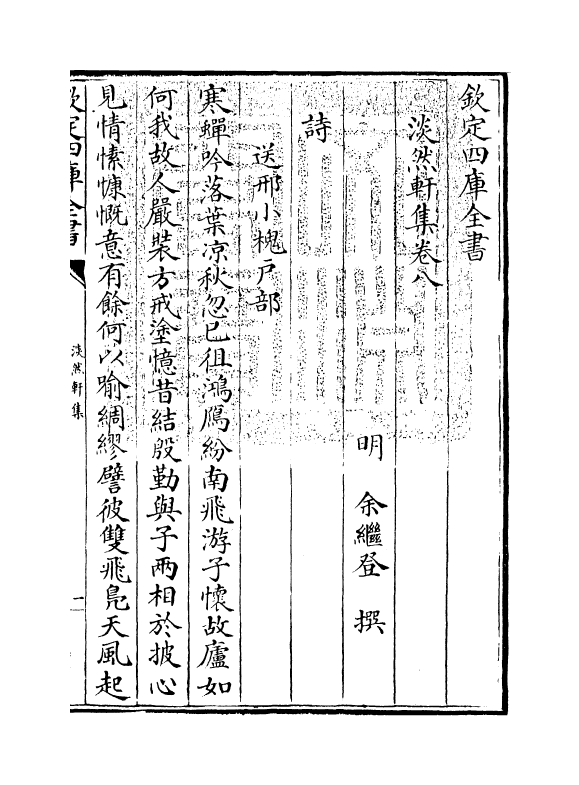 欽定四庫全書
淡然軒集卷八
明 余繼登 撰
詩
送邢小槐戶部
寒蟬吟落葉凉秋忽已徂鴻鴈紛南飛游子懷故廬如
何我故人嚴裝方戒塗憶昔結殷勤與子兩相於披心
見情愫慷慨意有餘何以喻綢繆譬彼雙飛鳧天風起
欽定四庫全書
淡然軒集
一